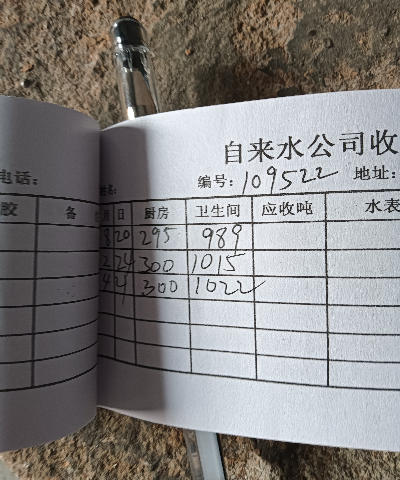 自来水公司收
电话:
编号:109522 地址:
胶 备 月 日 厨房 卫生间 应收吨 水表
8 20 295 989
2 24 300 1015
4 21 300 1022